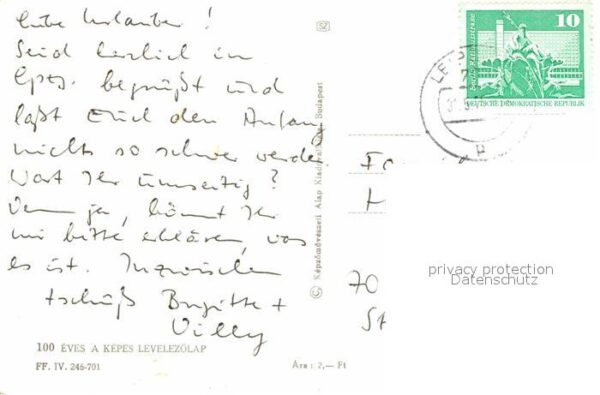 Liebe Urlauber!
Seid herzlich in
Lpzg. begrüßt und
laßt Euch den Anfang
nicht so schwer werden
Wart Ihr umseitig?
Wenn ja, könnt Ihr
mir bitte erklären, was
es ist. Inzwischen
tschüß Brigitte +
Willy
100 ÉVES A KÉPES LEVELEZŐLAP
FF. IV. 246-701
Ára: 2,— Ft
© Képzőművészeti Alap Kiadóvállalata, Budapest
10
DEUTSCHE DEMOKRATISCHE REPUBLIK
LEIPZ
70
privacy protection
Datenschutz